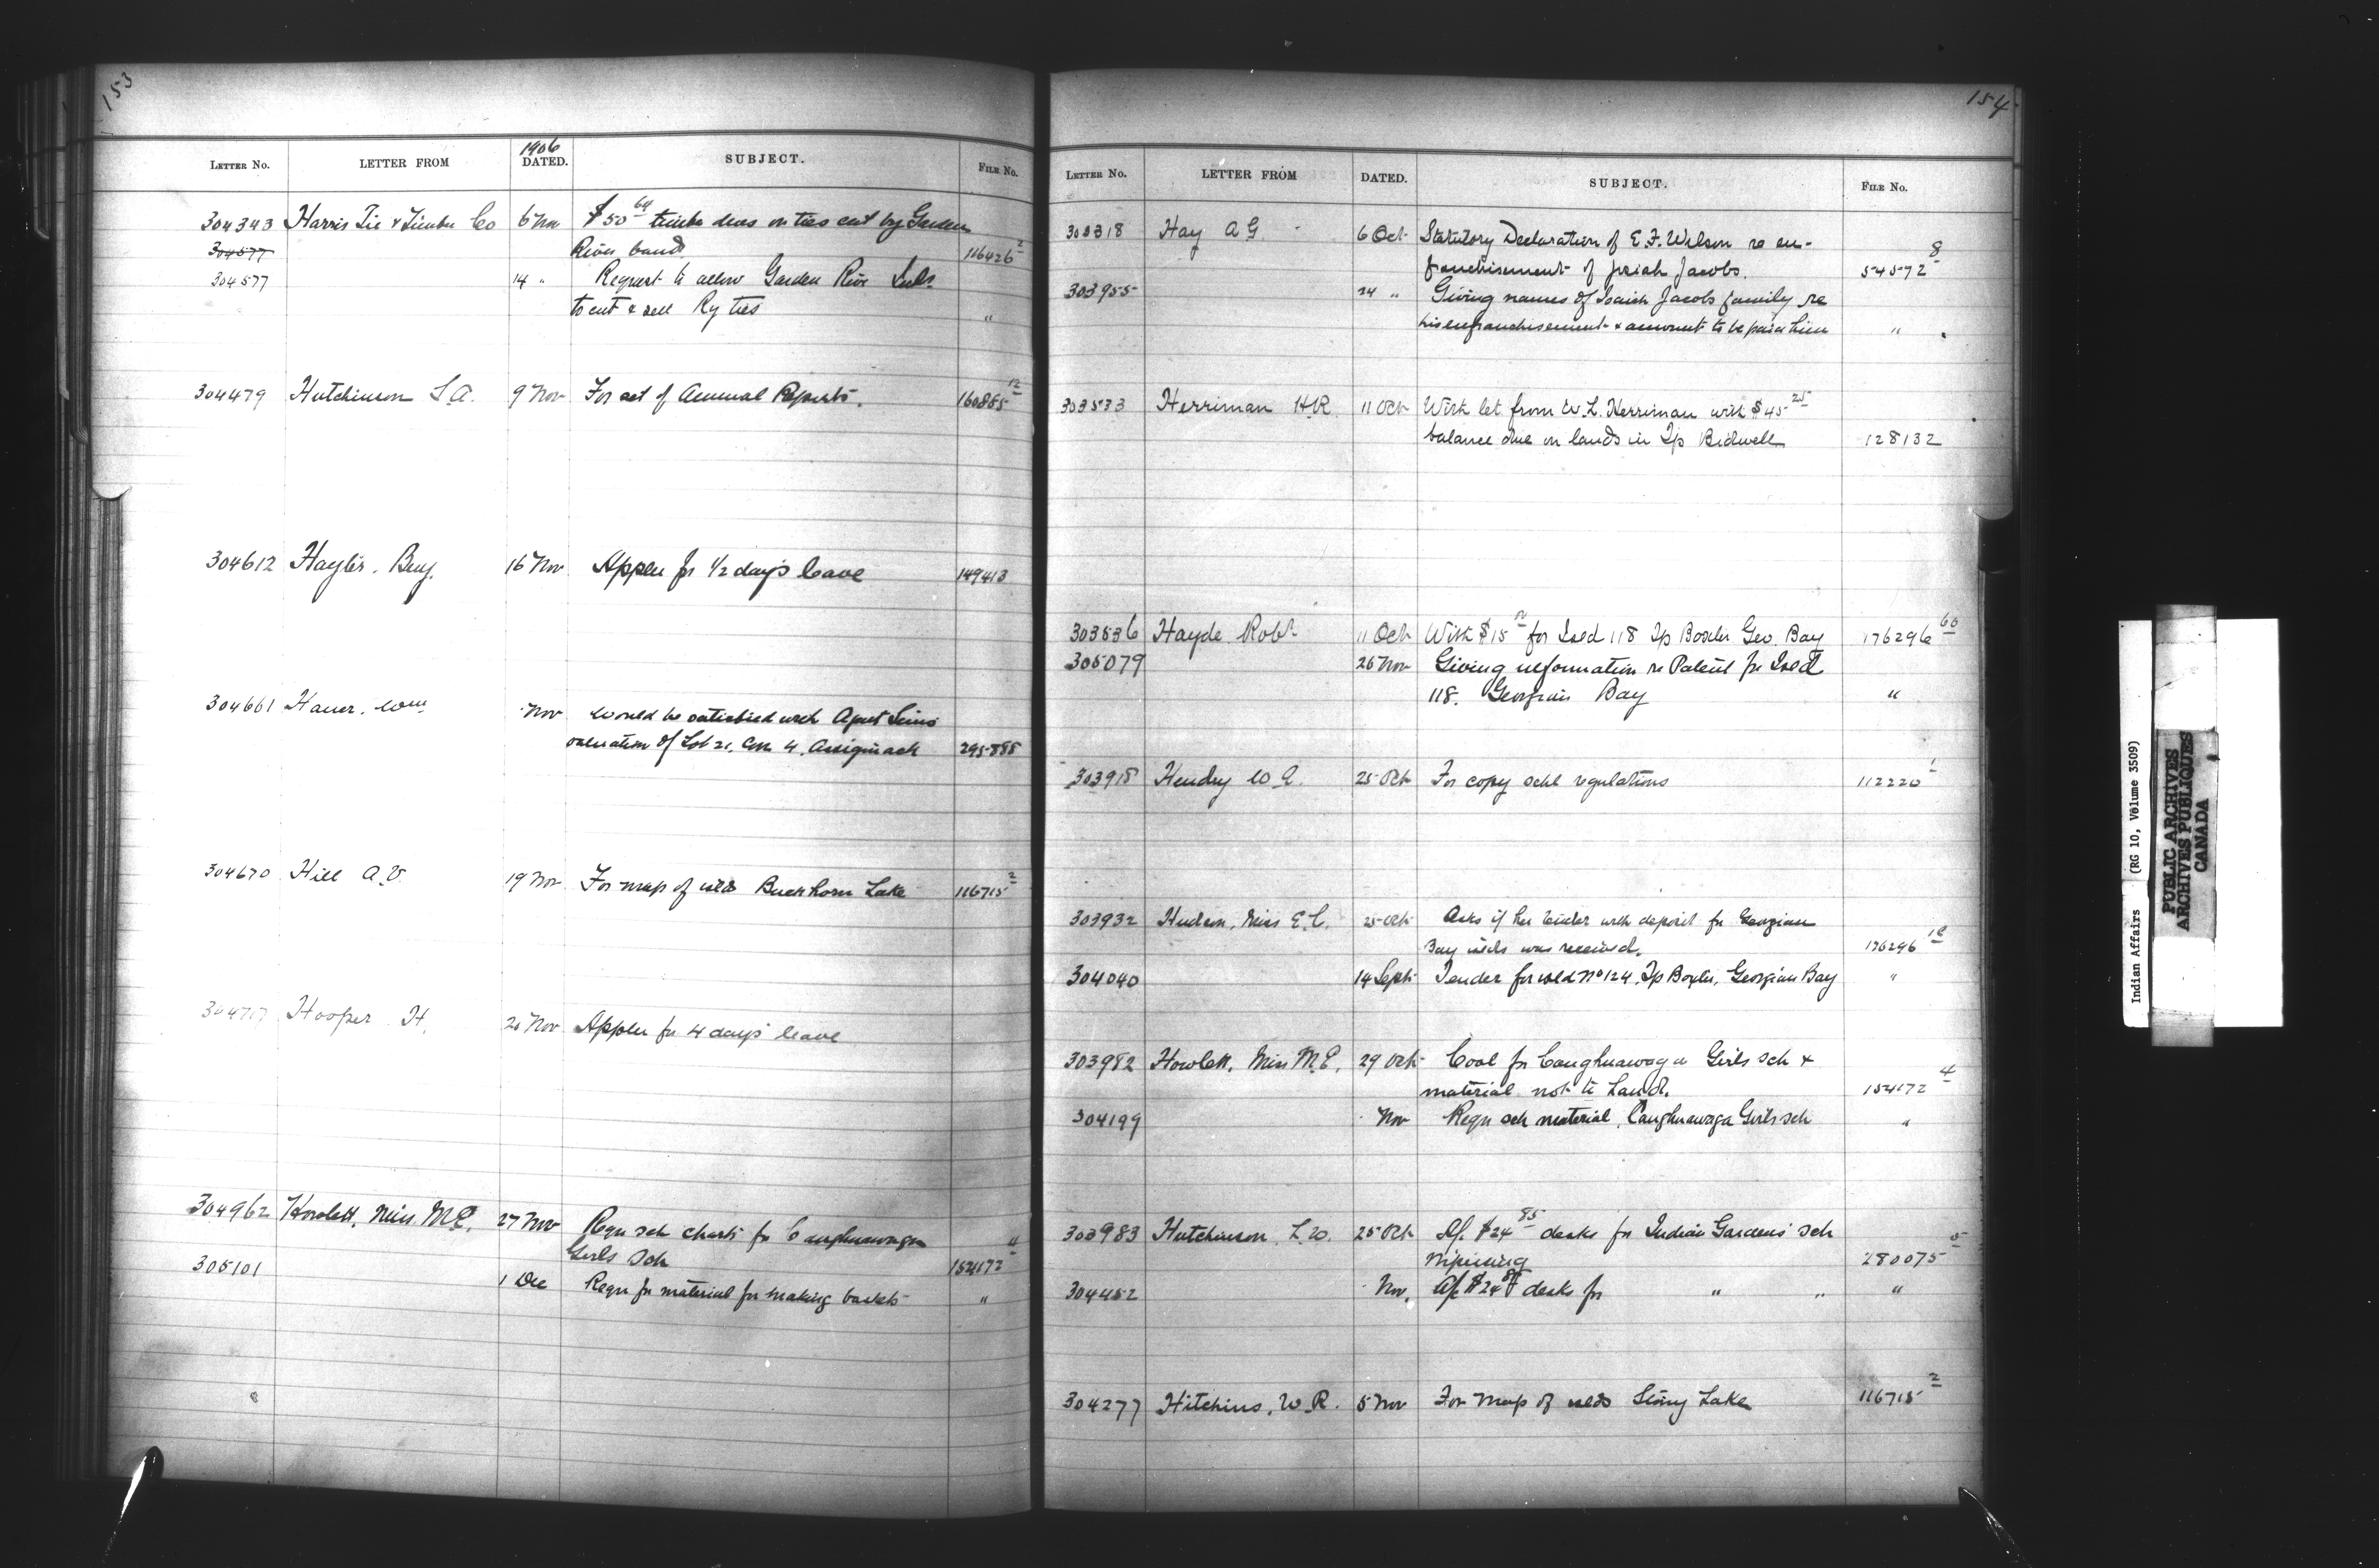 153
1906
LETTER NO. LETTER FROM DATED. SUBJECT. FILE No.
304343 Harris Tie & Timber Co 6 Nov $50 64 timber dues on ties cut by Garden
304577 River band 116426 2
304577 14 " Request to allow Garden River Inds
to cut & sell Ry ties "
304479 Hutchinson S.A. 9 Nov For set of Annual Reports. 160885 12
304612 Hayter, Benj. 16 Nov Appln for 1/2 day's leave 149413
304661 Haner, Wm Nov Would be satisfied with Agent Sims
valuation of Lot 21, Con 4, Assiginack 295888
304670 Hill A.V. 19 Nov For map of islds Buckhorn Lake 116715 2
304717 Hooper H. 20 Nov Appln for 4 days' leave
304962 Howlett, Miss M.E. 27 Nov Reqn sch charts for Caughnawaga
Girls Sch 154172 4
305101 1 Dec Reqn for material for making baskets "
154
LETTER No. LETTER FROM DATED. SUBJECT. FILE No.
303318 Hay A.G. 6 Oct Statutory Declaration of E.F. Wilson re en-
franchisement of Josiah Jacobs. 54572 8
303955 24 " Giving names of Isaiah Jacobs family re
his enfranchisement & amount to be paid him "
303533 Herriman H.R. 11 Oct With let from W.L. Herriman with $45 25
balance due on lands in Tp Bidwell 128132
303536 Hayde Robt 11 Oct With $15 for Isld 118 Tp Baxter Geo. Bay 176296 60
305079 26 Nov Giving information re Patent for Isld
118. Georgian Bay "
303918 Hendry W.A. 25 Oct For copy schl regulations 112220 1
303932 Hudson, Miss E.C. 25 Oct Asks if her tender with deposit for Georgian
Bay islds was received. 176296
304040 14 Sept Tender for isld No 124, Tp Baxter, Georgian Bay "
303982 Howlett, Miss M.E. 29 Oct Coal for Caughnawaga Girls sch &
material not to hand. 154172 4
304199 Nov Reqn sch material, Caughnawaga Girls sch "
303983 Hutchinson L.W. 25 Oct A/c $24 85 desks for Indian Gardens sch
Nipissing 280075 5
304452 Nov. A/c $24 85 desks for " " "
304277 Hitchins, W.R. 5 Nov For map of islds Stony Lake 116715 2
Indian Affairs (RG 10, Volume 3509)
PUBLIC ARCHIVES
ARCHIVES PUBLIQUES
CANADA